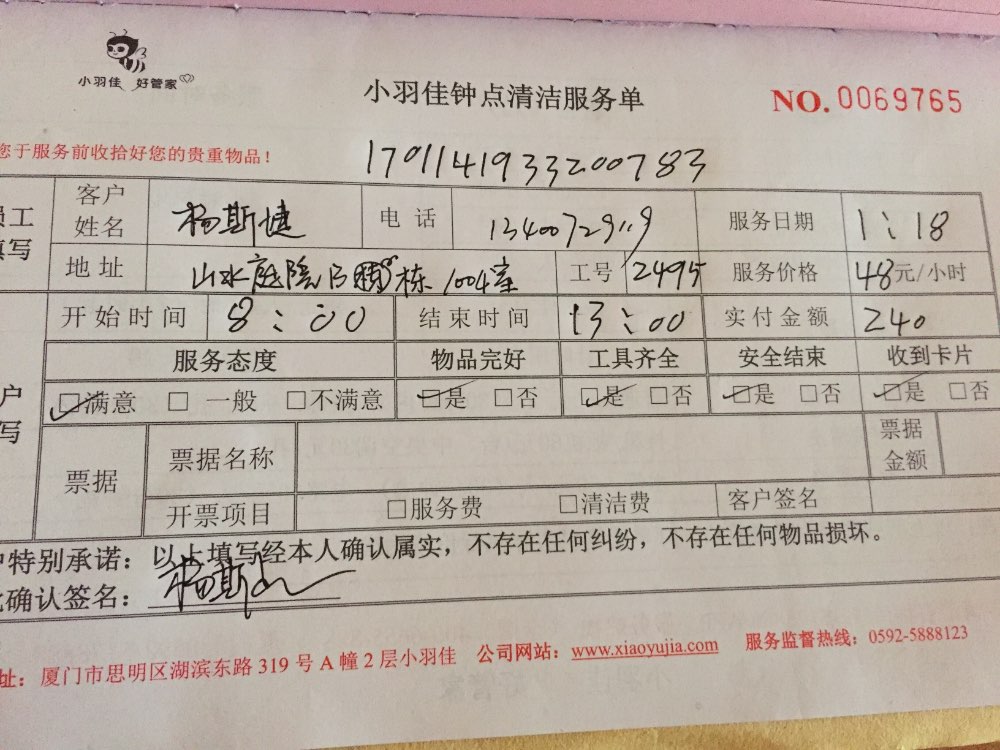 小羽佳 好管家
小羽佳钟点清洁服务单
NO.0069765
您于服务前收拾好您的贵重物品!
1701141933200783
员工填写 客户姓名 杨斯婕 电话 服务日期 1:18
地址 山水庭院 栋1004室 工号 2495 服务价格 48元/小时
开始时间 8:00 结束时间 13:00 实付金额 240
服务态度 物品完好 工具齐全 安全结束 收到卡片
☑满意 □一般 □不满意 ☑是 □否 ☑是 □否 ☑是 □否 ☑是 □否
票据 票据名称 票据金额
开票项目 □服务费 □清洁费 客户签名
户特别承诺:以上填写经本人确认属实,不存在任何纠纷,不存在任何物品损坏。
确认签名:杨斯
址:厦门市思明区湖滨东路319号A幢2层小羽佳 公司网站:www.xiaoyujia.com 服务监督热线:0592-5888123